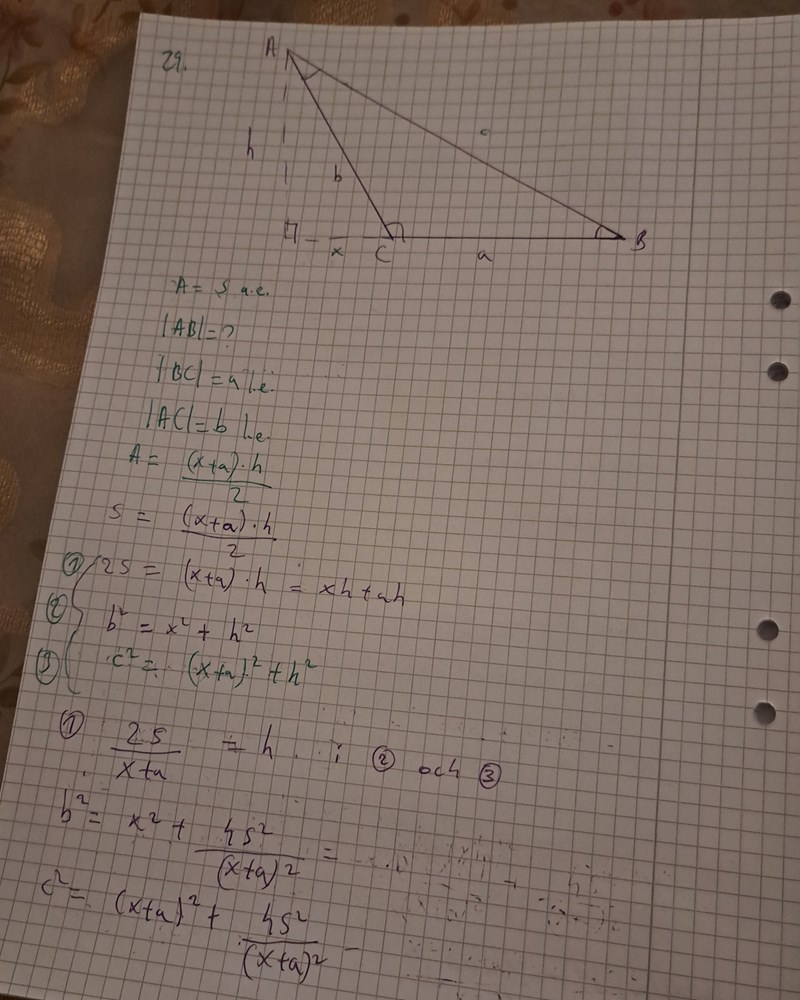 29.
A
c
h
b
x
C
a
B
A = S a.e.
|AB| = ?
|BC| = a l.e.
|AC| = b l.e.
A = (x+a)·h / 2
S = (x+a)·h / 2
① 2S = (x+a)·h = xh+ah
② b² = x² + h²
③ c² = (x+a)² + h²
① 2S / x+a = h i ② och ③
b² = x² + 4S² / (x+a)² =
c² = (x+a)² + 4S² / (x+a)²